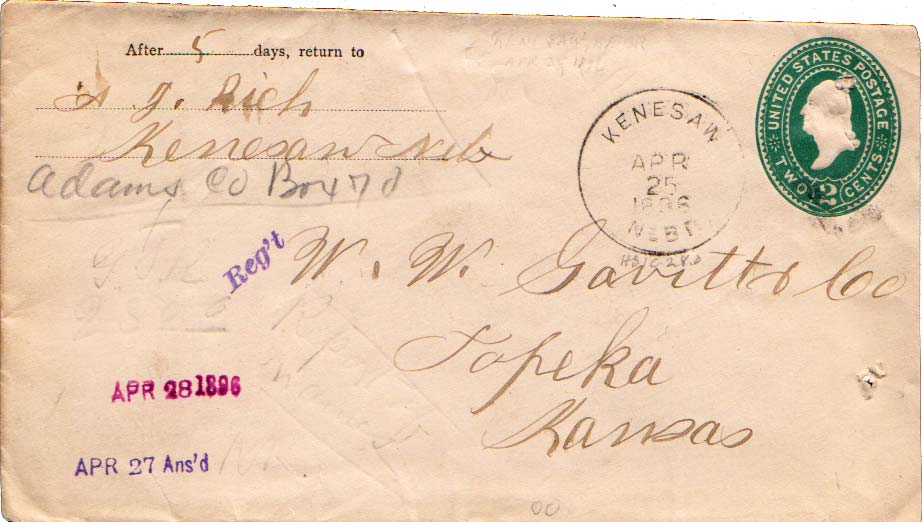 After 5 days, return to
A. J. Rich
Kenesaw Neb
Adams Co Box 78
KENESAW
APR
25
1896
NEBR
UNITED STATES POSTAGE
TWO 2 CENTS
Reg't
W. W. Gavitt & Co
Topeka
Kansas
APR 28 1896
APR 27 Ans'd